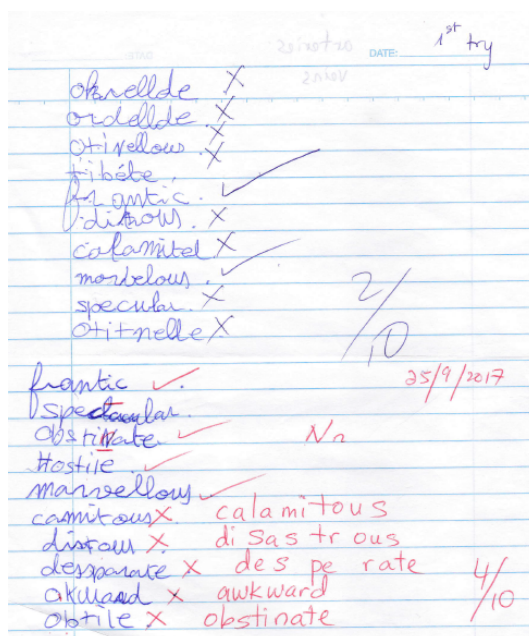 1st try
DATE:
okrellde X
ordellde X
otivellous. X
tibéte. X
frantic. ✓
ditrous. X
calamitel X
morbelous. ✓
specular. X
otitnelle X
2/10
25/9/2017
frantic ✓.
spectacular.
obstinate ✓ Nn
Hostile ✓
marvellous ✓
camitous X calamitous
distrous X disastrous
desparate X des pe rate
akward X awkward
4/10
obtile X obstinate